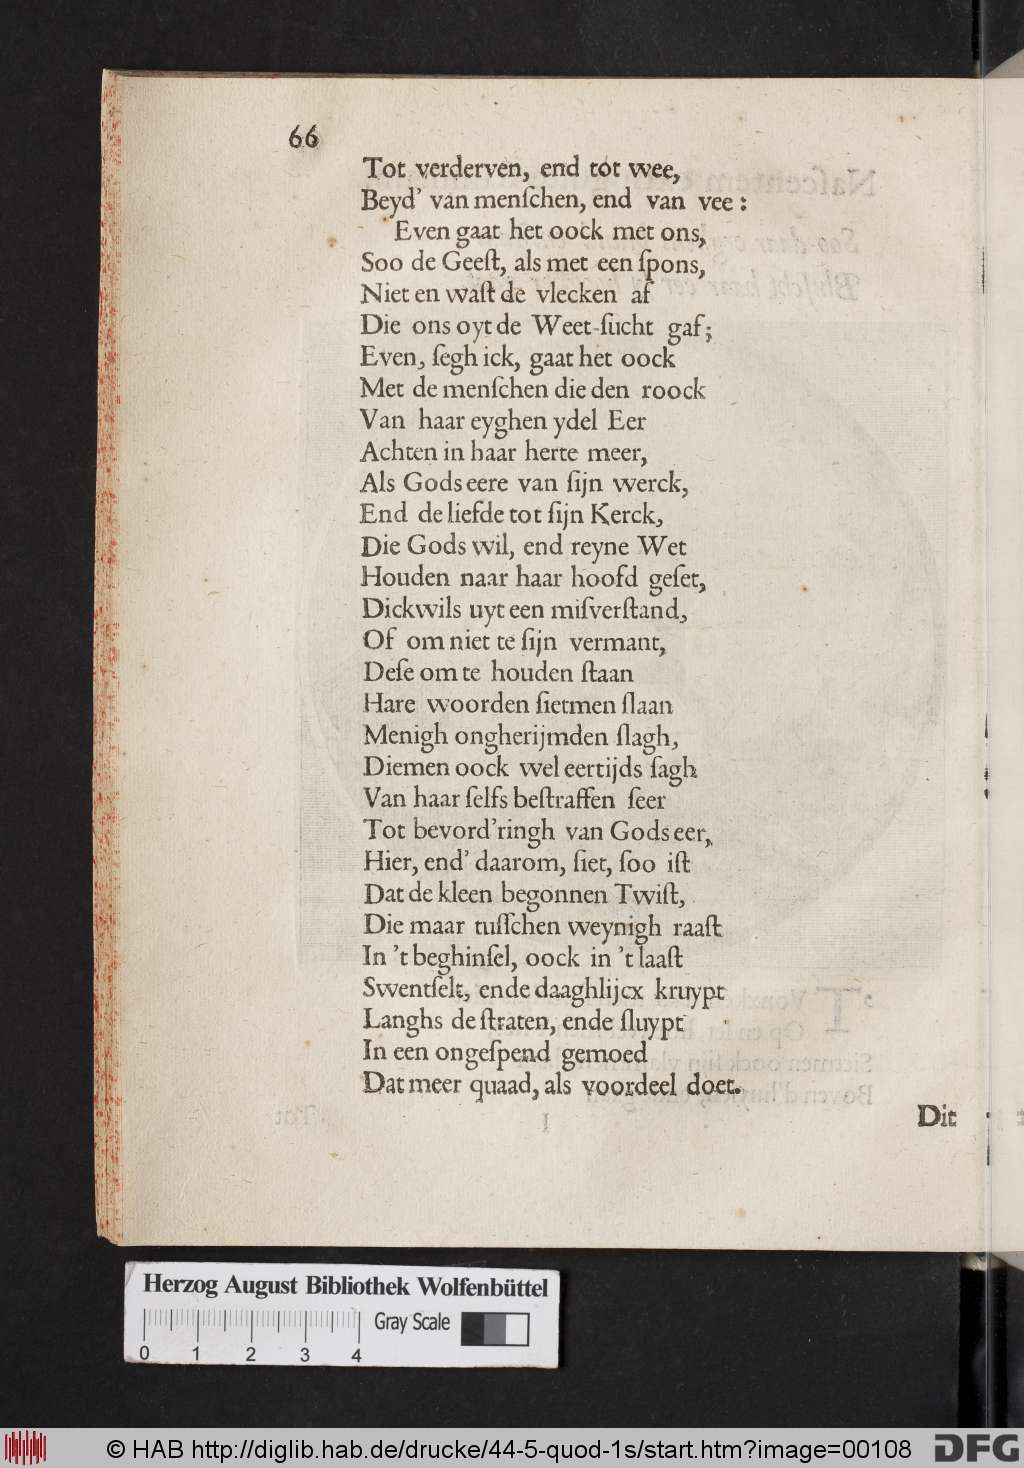 66
Tot verderven, end tot wee,
Beyd' van menſchen, end van vee:
Even gaat het oock met ons,
Soo de Geeſt, als met een ſpons,
Niet en waſt de vlecken af
Die ons oyt de Weet-ſucht gaf;
Even, ſegh ick, gaat het oock
Met de menſchen die den roock
Van haar eyghen ydel Eer
Achten in haar herte meer,
Als Gods eere van ſijn werck,
End de liefde tot ſijn Kerck,
Die Gods wil, end reyne Wet
Houden naar haar hoofd geſet,
Dickwils uyt een miſverſtand,
Of om niet te ſijn vermant,
Deſe om te houden ſtaan
Hare woorden ſietmen ſlaan
Menigh ongherijmden ſlagh,
Diemen oock wel eertijds ſagh
Van haar ſelfs beſtraffen ſeer
Tot bevord'ringh van Gods eer,
Hier, end' daarom, ſiet, ſoo iſt
Dat de kleen begonnen Twiſt,
Die maar tuſſchen weynigh raaſt
In 't beghinſel, oock in 't laaſt
Swentſelt, ende daaghlijcx kruypt
Langhs de ſtraten, ende ſluypt
In een ongeſpend gemoed
Dat meer quaad, als voordeel doet.
Dit
Herzog August Bibliothek Wolfenbüttel
Gray Scale
0 1 2 3 4
© HAB http://diglib.hab.de/drucke/44-5-quod-1s/start.htm?image=00108
DFG